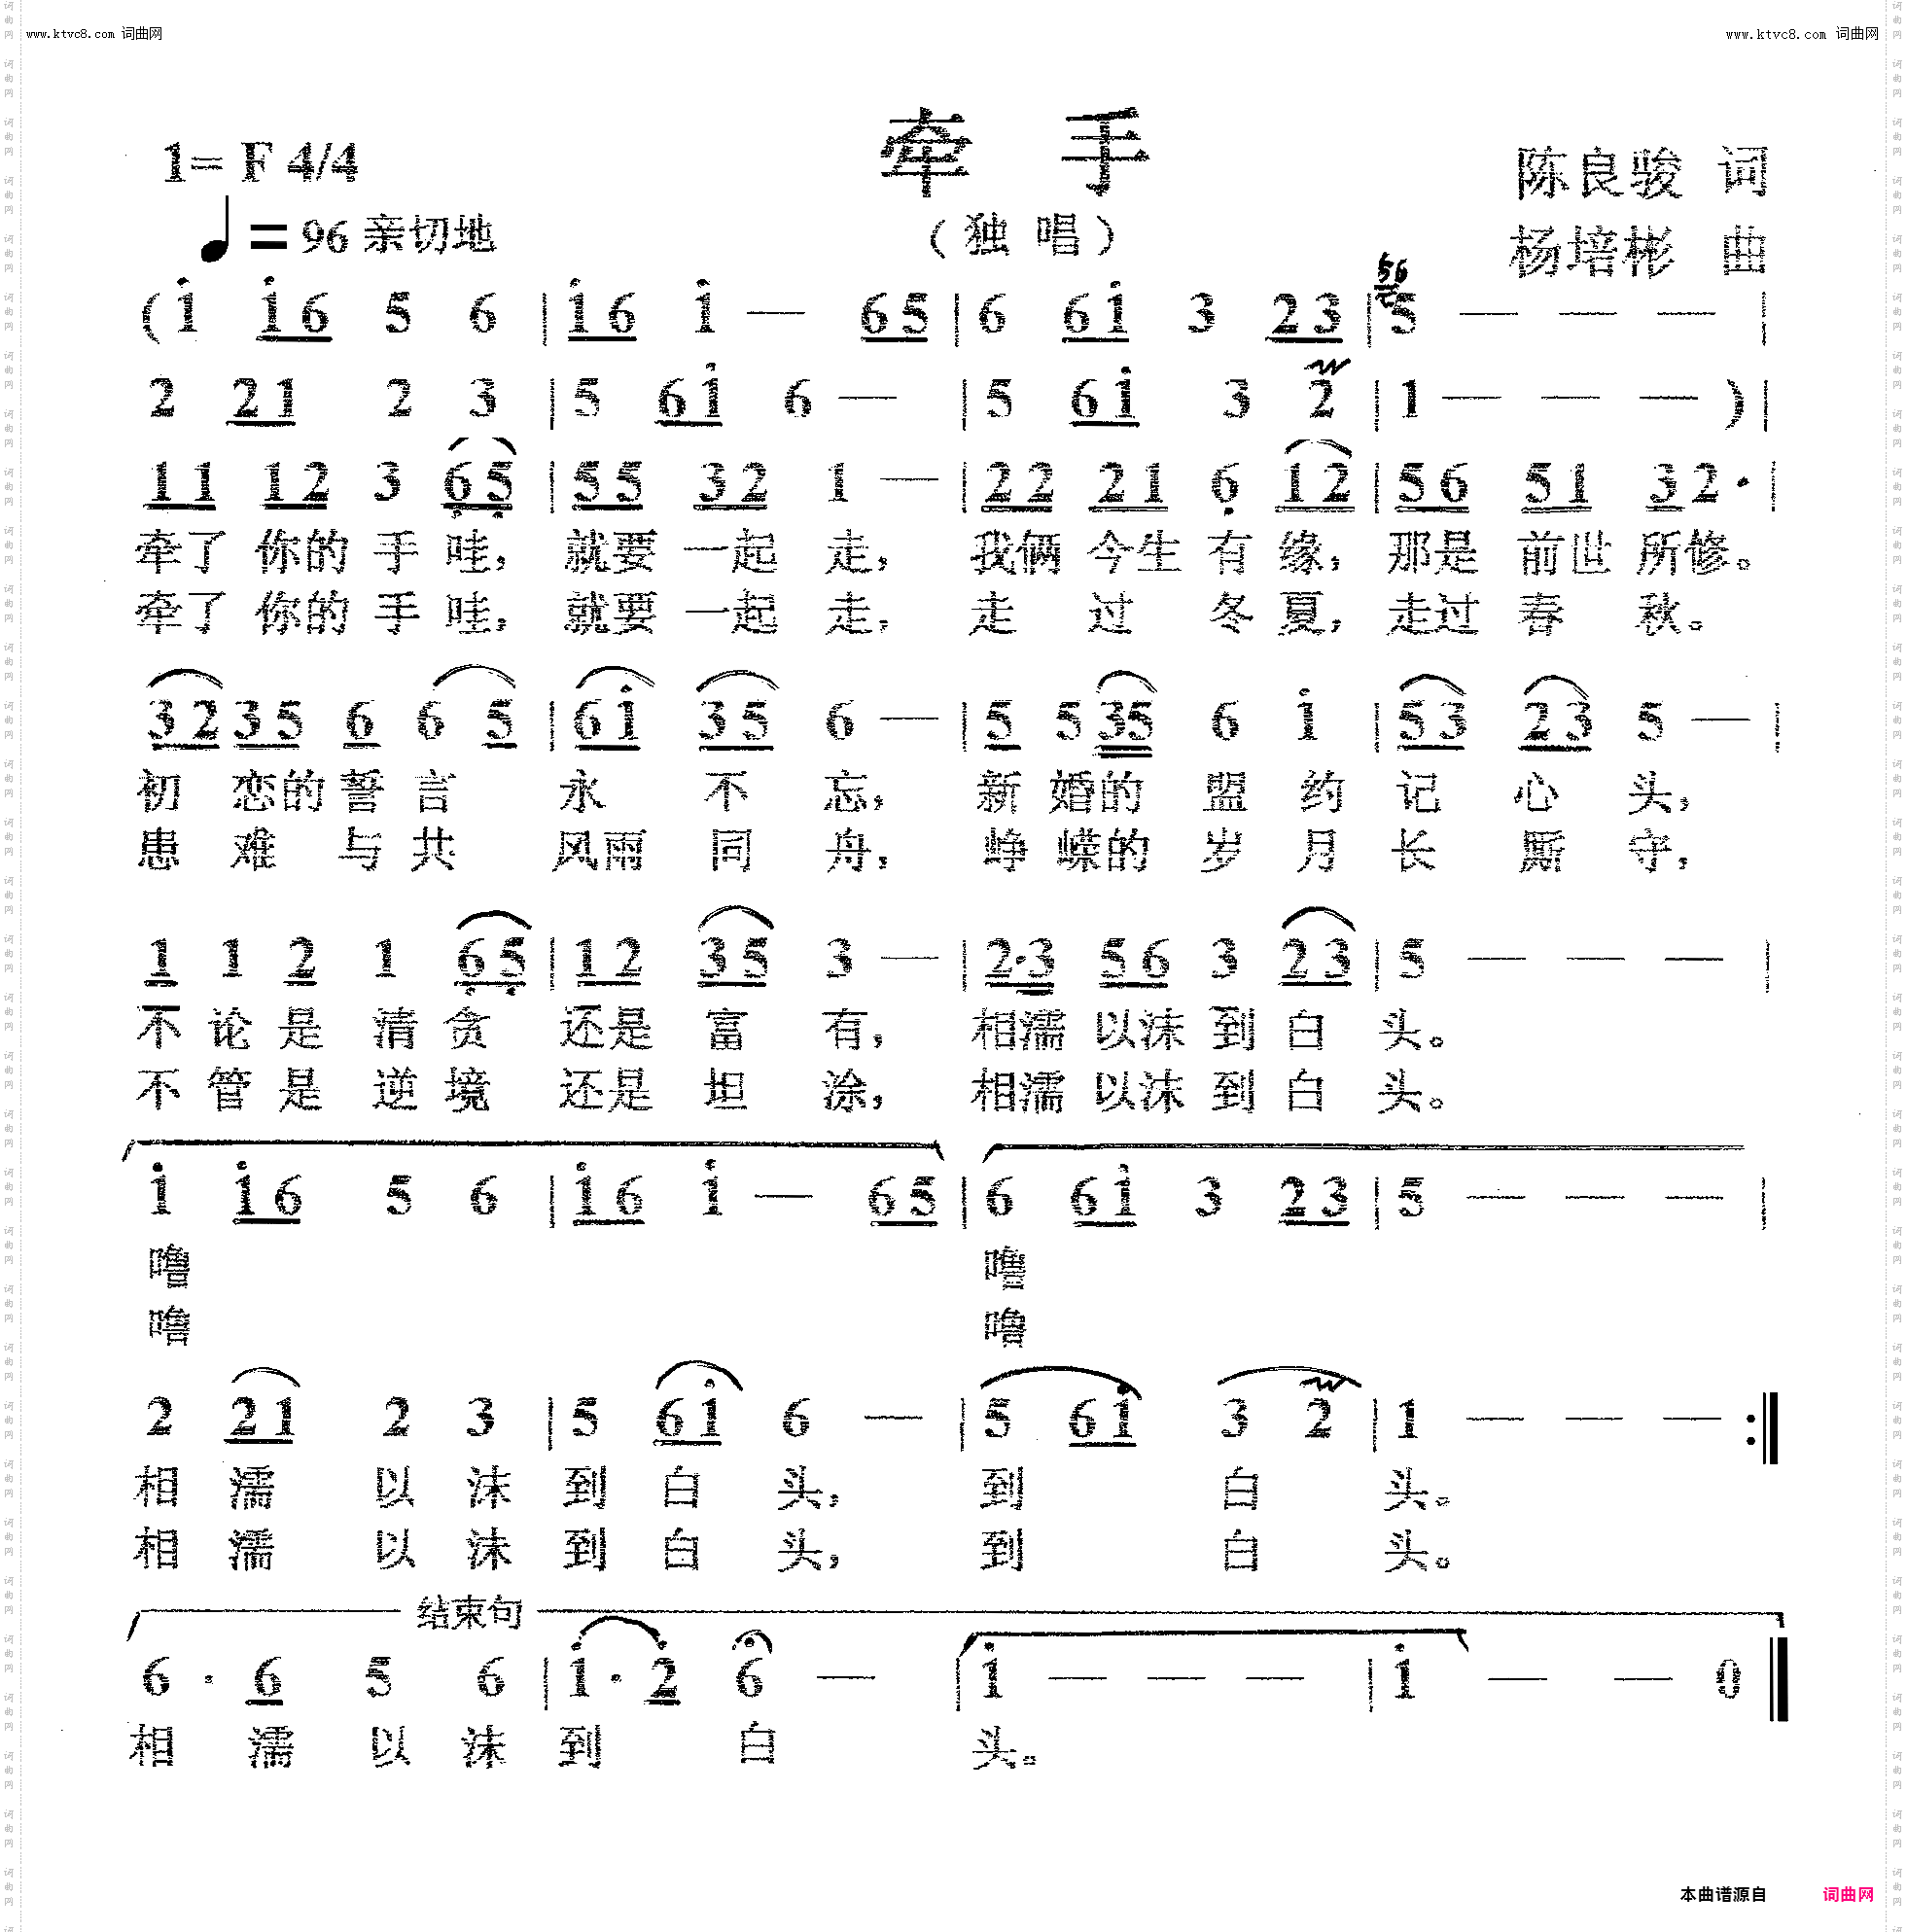 www.ktvc8.com 词曲网
www.ktvc8.com 词曲网
牵 手
1= F 4/4
陈良骏 词
♩= 96 亲切地
（独 唱）
杨培彬 曲
56
( i i6 5 6 | i6 i — 65 | 6 6i 3 23 | 5 — — — |
2 21 2 3 | 5 6i 6 — | 5 6i 3 2 | 1 — — — ) |
11 12 3 65 | 55 32 1 — | 22 21 6 12 | 56 51 32· |
牵了 你的 手 哇， 就要 一起 走， 我俩 今生 有 缘， 那是 前世 所修。
牵了 你的 手 哇， 就要 一起 走， 走 过 冬 夏， 走过 春 秋。
32 35 6 6 5 | 6i 35 6 — | 5 5 35 6 i | 53 23 5 — |
初 恋的 誓 言 永 不 忘， 新 婚的 盟 约 记 心 头，
患 难 与 共 风雨 同 舟， 峥 嵘的 岁 月 长 厮 守，
1 1 2 1 65 | 12 35 3 — | 2·3 56 3 23 | 5 — — — |
不 论 是 清 贪 还是 富 有， 相濡 以沫 到 白 头。
不 管 是 逆 境 还是 坦 涂， 相濡 以沫 到 白 头。
i i6 5 6 | i6 i — 65 | 6 6i 3 23 | 5 — — — |
噜 噜
噜 噜
2 21 2 3 | 5 6i 6 — | 5 6i 3 2 | 1 — — — :|
相 濡 以 沫 到 白 头， 到 白 头。
相 濡 以 沫 到 白 头， 到 白 头。
结束句
6 · 6 5 6 | i · 2 6 — | i — — — | i — — 0 |
相 濡 以 沫 到 白 头。
本曲谱源自 词曲网